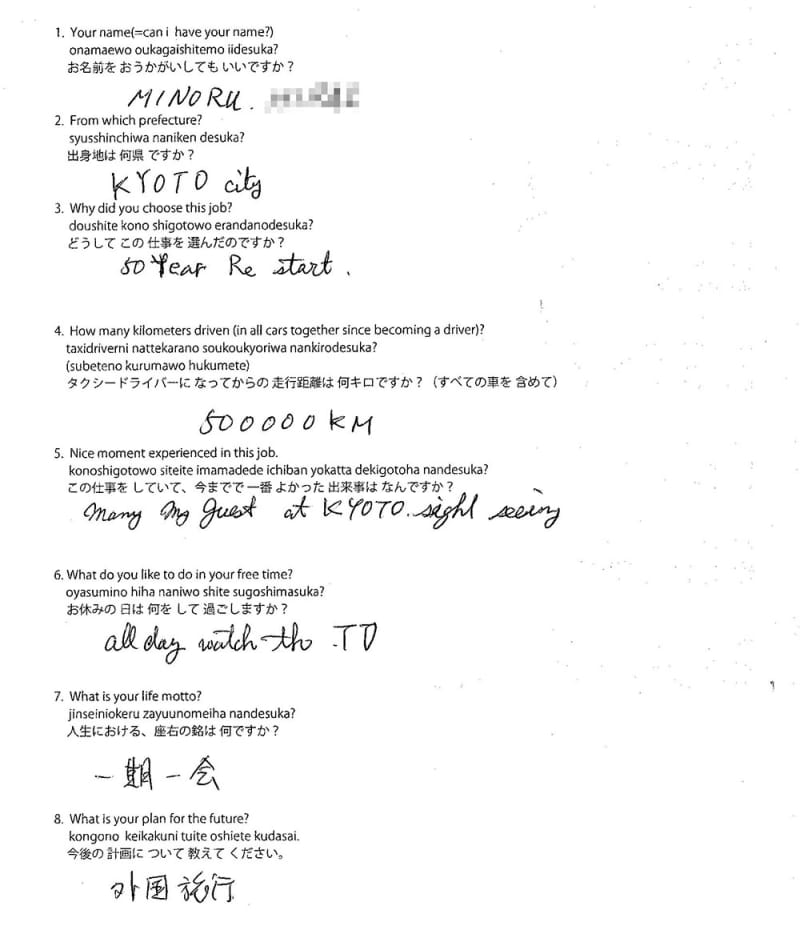 1. Your name(=can i have your name?)
onamaewo oukagaishitemo iidesuka?
お名前を おうかがいしても いいですか？
MINORU.
2. From which prefecture?
syusshinchiwa naniken desuka?
出身地は 何県 ですか？
KYOTO city
3. Why did you choose this job?
doushite kono shigotowo erandanodesuka?
どうして この 仕事を 選んだのですか？
50 Year Re start.
4. How many kilometers driven (in all cars together since becoming a driver)?
taxidriverni nattekarano soukoukyoriwa nankirodesuka?
(subeteno kurumawo hukumete)
タクシードライバーに なってからの 走行距離は 何キロですか？（すべての車を 含めて）
500000KM
5. Nice moment experienced in this job.
konoshigotowo siteite imamadede ichiban yokatta dekigotoha nandesuka?
この仕事を していて、今までで 一番 よかった 出来事は なんですか？
Many My Guest at KYOTO. sight seeing
6. What do you like to do in your free time?
oyasumino hiha naniwo shite sugoshimasuka?
お休みの 日は 何を して 過ごしますか？
all day watch th .TV
7. What is your life motto?
jinseiniokeru zayuunomeiha nandesuka?
人生における、座右の銘は 何ですか？
一期一会
8. What is your plan for the future?
kongono keikakuni tuite oshiete kudasai.
今後の 計画に ついて 教えて ください。
外国旅行